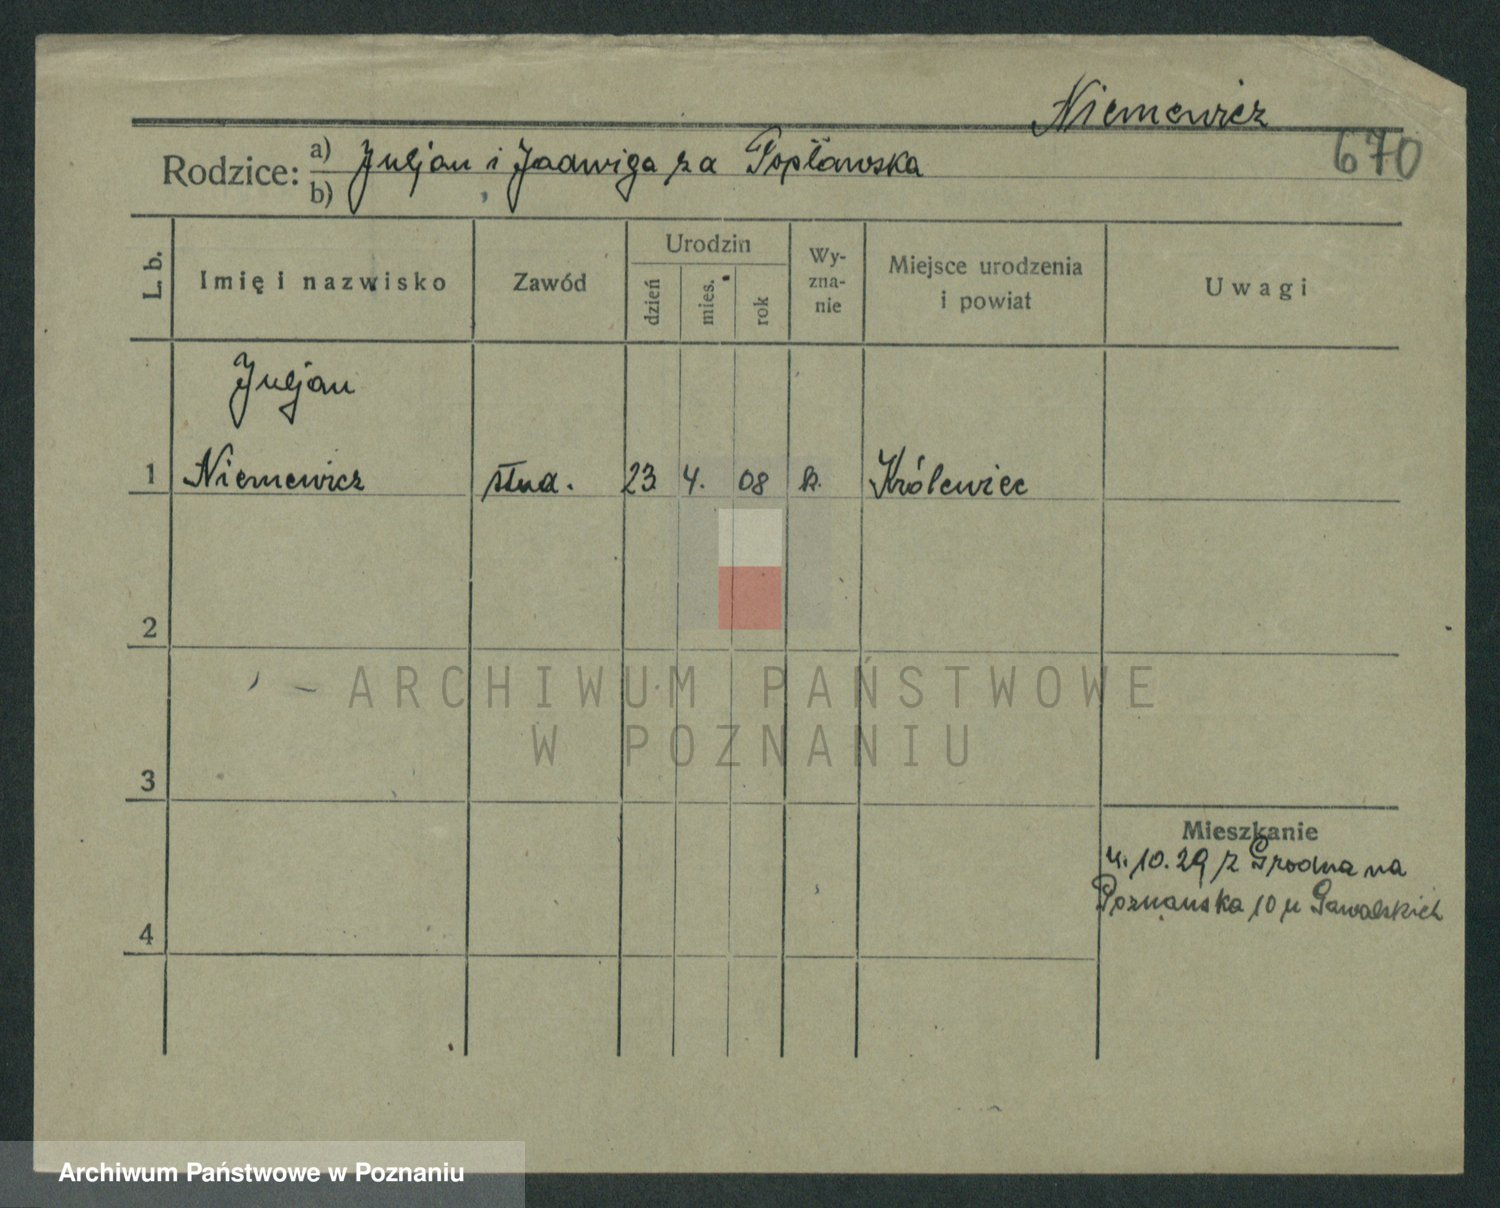 Niemewicz
670
Rodzice: a) Juljan i Jadwiga za Popławska
b)
L. b.
Imię i nazwisko
Zawód
Urodzin
dzień
mies.
rok
Wy-
zna-
nie
Miejsce urodzenia
i powiat
Uwagi
Juljan
1 Niemewicz stud. 23 4. 08 k. Królewiec
2
ARCHIWUM PAŃSTWOWE
W POZNANIU
3
Mieszkanie
4. 10. 29 z Grodna na
Poznańska 10 u Gawalskich
4
Archiwum Państwowe w Poznaniu